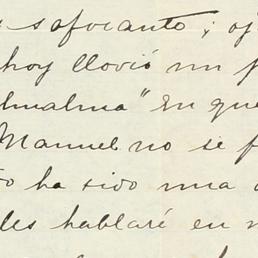 sofocante; oj
hoy llovió un p
" en que
Manuel no se f
o ha sido una
les hablaré en